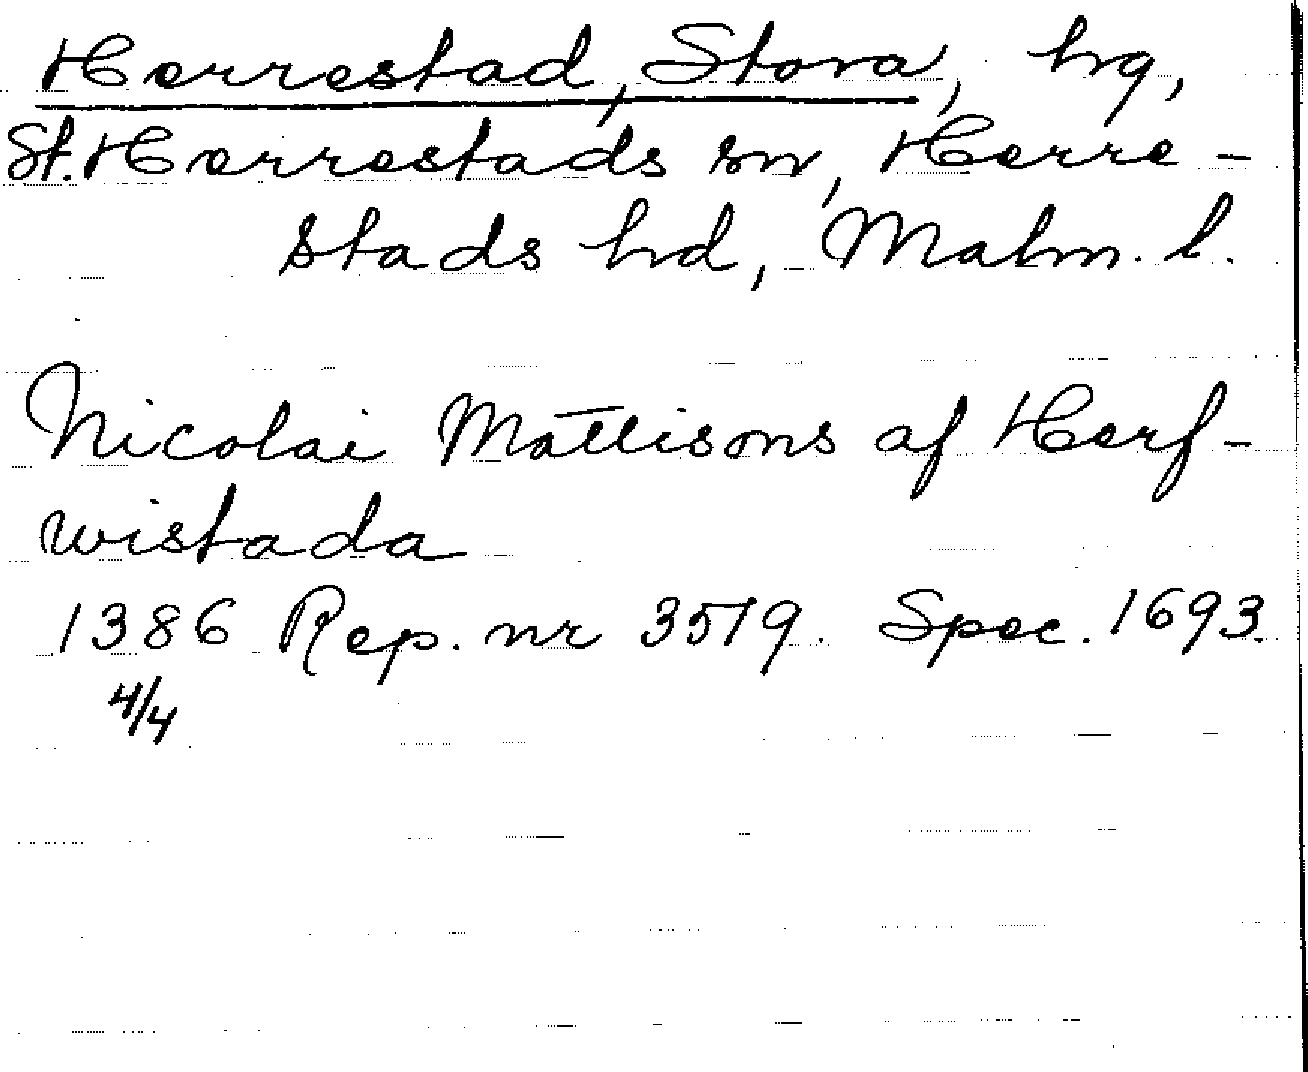 Herrestad, Stora, hg,
St. Herrestads sn, Herre-
stads hd, Malm. l.
Nicolai Mattisons af Herf-
wistada
1386 Rep. nr 3519. Spec. 1693.
4/4